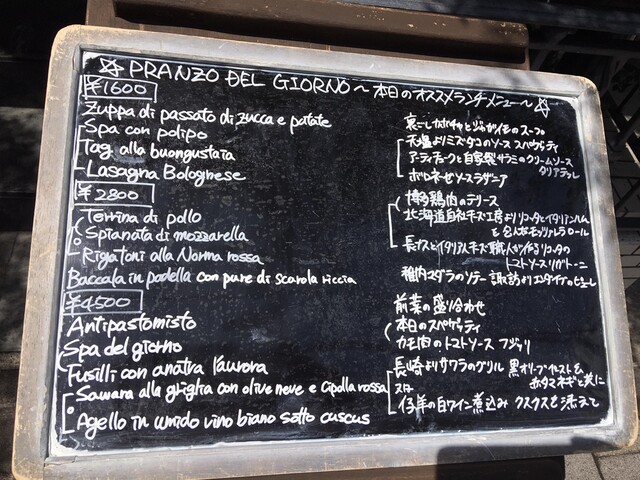 ☆ PRANZO DEL GIORNO ～ 本日のオススメランチメニュー ～ ☆
¥1600
Zuppa di passato di zucca e patate
裏ごしカボチャとジャガイモのスープ
Spa con polipo
天塩よりミズダコのソース スパゲッティ
Tag alla buongustaia
アーティチョークと自家製サラミのクリームソース
タリアテッレ
Lasagna Bolognese
ボロネーゼソースラザニア
¥2800
Terrina di pollo
博多鶏肉のテリーヌ
Spianata di mozzarella
北海道自社チーズ工房よりリコッタとイタリアンハム
を包んだモッツァレラロール
Rigatoni alla Norma rossa
長ナスとイタリアチーズ職人が作るリコッタの
トマトソース リガトーニ
Baccala in padella con pure di scarola riccia
稚内マダラのソテー 諏訪よりエンダイブのピューレ
¥4500
Antipastomisto
前菜の盛り合わせ
Spa del giorno
本日のスパゲッティ
Fusilli con anatra l'aurora
カモ肉のトマトソース フジッリ
Sawara alla griglia con olive neve e cipolla rossa
長崎よりサワラのグリル 黒オリーブペーストと
赤タマネギと共に
又は
Agello in umido vino biano sotto cuscus
仔羊の白ワイン煮込み クスクスを添えて